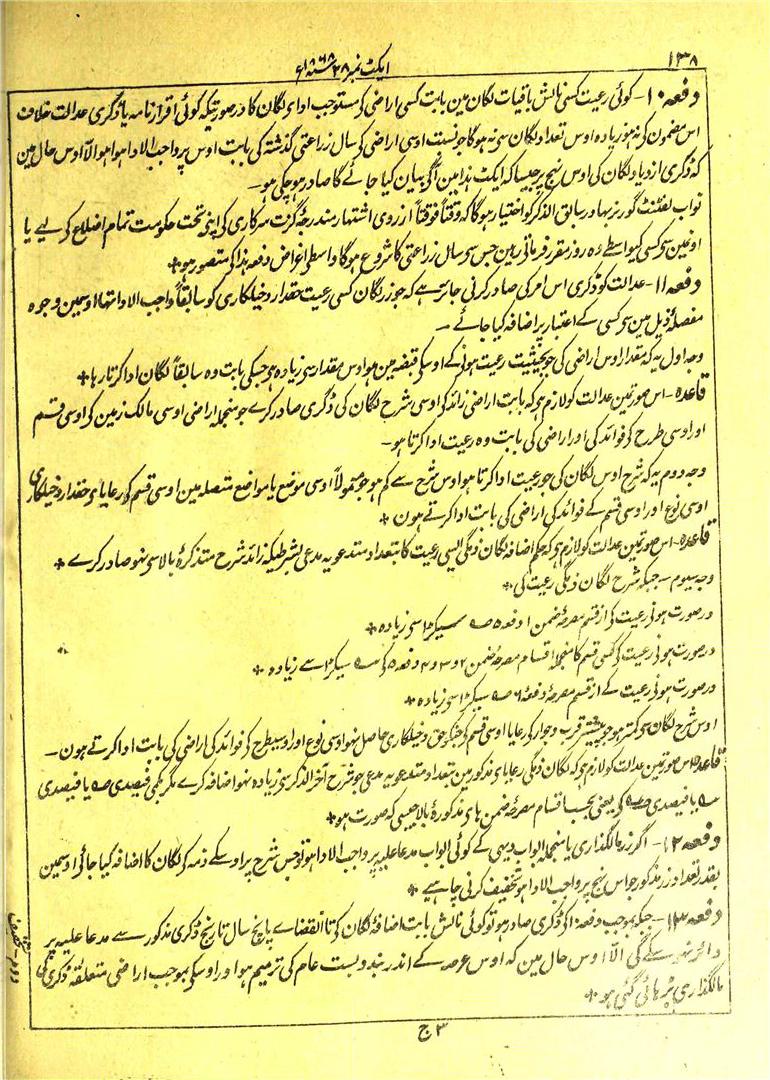 ۱۳۸
ایکٹ نمبر ۲۸ سنہ ۱۸۶۸ء
دفعہ ۱۰ - کوئی رعیت کسی نالش باقیات لگان مین بابت کسی اراضی کی مستوجب ادای لگان کا در صورتیکہ کوئی اقرارنامہ یا ڈگری عدالت خلاف
اس مضمون کی نہو زیادہ اوس تعداد لگان سی نہ ہوگا جو نسبت اوسی اراضی کی سال زراعتی گذشتہ کی بابت اوس پر واجب الادا ہوا ہو الا اوس حال مین
کہ ڈگری ازدیاد لگان کی اوس نہج پر جیسا کہ ایکٹ ہذا مین آگی بیان کیا جائے گا صادر ہو چکی ہو -
نواب لفٹننٹ گورنر بہادر سابق الذکر کو اختیار ہوگا کہ وقتاً فوقتاً از روی اشتہار مندرجہ گزٹ سرکاری کی اپنی تحت حکومت تمام اضلاع کے لیے یا
اونمین سی کسی کیواسطے وہ روز مقرر فرمائی رہین جس سی سال زراعتی کا شروع ہوگا واسطی اغراض دفعہ ہذا کی متصور ہو
دفعہ ۱۱ - عدالت کو ڈگری اس امر کی صادر کرنی جائز ہے کہ جو زر لگان کسی رعیت حقدار دخیلکاری کو سابقاً واجب الادا تھا اوسمین وجوہ
مفصلہ ذیل مین سی کسی کے اعتبار پر اضافہ کیا جائے -
وجہ اول یہ کہ مقدار اوس اراضی کی جو بحیثیت رعیت ہونی کے اوسکی قبضہ مین ہو اوس مقدار سی زیادہ ہو جسکی بابت وہ سابقاً لگان ادا کرتا رہا
قاعدہ - اس صورتمین عدالت کو لازم ہی کہ بابت اراضی زائد کی اوسی شرح لگان کی ڈگری صادر کرے جو منجملہ اراضی اوسی مالک زمین کی اوسی قسم
اور اوسی طرح کی فوائد کی اور اراضی کی بابت وہ رعیت ادا کرتا ہو -
وجہ دوم یہ کہ شرح اوس لگان کی جو رعیت ادا کرتا ہو اوس شرح سے کم ہو جو معمولاً اوسی موضع یا مواضع متصلہ مین اوسی قسم کی رعایای حقدار دخیلکاری
اوسی نوع اور اوسی قسم کے فوائد کی اراضی کی بابت ادا کرتے ہون
قاعدہ - اس صورتمین عدالت کو لازم ہی کہ حکم اضافہ لگان ذمگی ایسی رعیت کا بتعداد مستدعویہ مدعی بشرطیکہ زائد شرح متذکرہ بالا سی نہو صادر کرے
وجہ سیوم - جبکہ شرح لگان ذمگی رعیت کی
در صورت ہونی رعیت کی از قسم مصرحہ ضمن ۱ دفعہ ۵ سیکڑا سی زیادہ
در صورت ہونی رعیت کی کسی قسم کا منجملہ اقسام مصرحہ ضمن ۲ و ۳ و ۴ دفعہ ۵ کی سیکڑا سے زیادہ
در صورت ہونی رعیت کے از قسم مصرحہ دفعہ ۶ سیکڑا سی زیادہ
اوس شرح لگان سی کمتر ہو جو بیشتر قرب و جوار کی رعایا اوسی قسم کی جنکو حق دخیلکاری حاصل نہو اوسی نوع اور اوسیطرح کی فوائد کی اراضی کی بابت ادا کرتے ہون -
قاعدہ اس صورتمین عدالت کو لازم ہی کہ لگان ذمگی رعایای مذکور مین بتعداد مستدعویہ مدعی جو شرح آخر الذکر سی زیادہ نہو اضافہ کرے مگر کمی فیصدی یا فیصدی
یا فیصدی کی یعنی بحسب اقسام مصرحہ ضمن ہای مذکورہ بالا جیسی کہ صورت ہو
دفعہ ۱۲ - اگر زر مالگذاری یا منجملہ ابواب دیہی کے کوئی ابواب مدعا علیہ پر واجب الادا ہو تو جس شرح پر اوسکے ذمہ کی لگان کا اضافہ کیا جائی اوسمین
بقدر تعداد زر مذکور جو اس نہج پر واجب الادا ہو تخفیف کرنی چاہیے
دفعہ ۱۳ - جبکہ بموجب دفعہ ۱۱ کی ڈگری صادر ہو تو کوئی نالش بابت اضافہ لگان کی تا انقضاے پانچ سال تاریخ ڈگری مذکور سے مدعا علیہ پر
دائر نہو سکے گی الا اوس حال مین کہ اوس عرصہ کے اندر بندوبست عام کی ترمیم ہو اور اوسکی بموجب اراضی متعلقہ ڈگری کی
مالگذاری بڑھائی گئی ہو
۳ ج